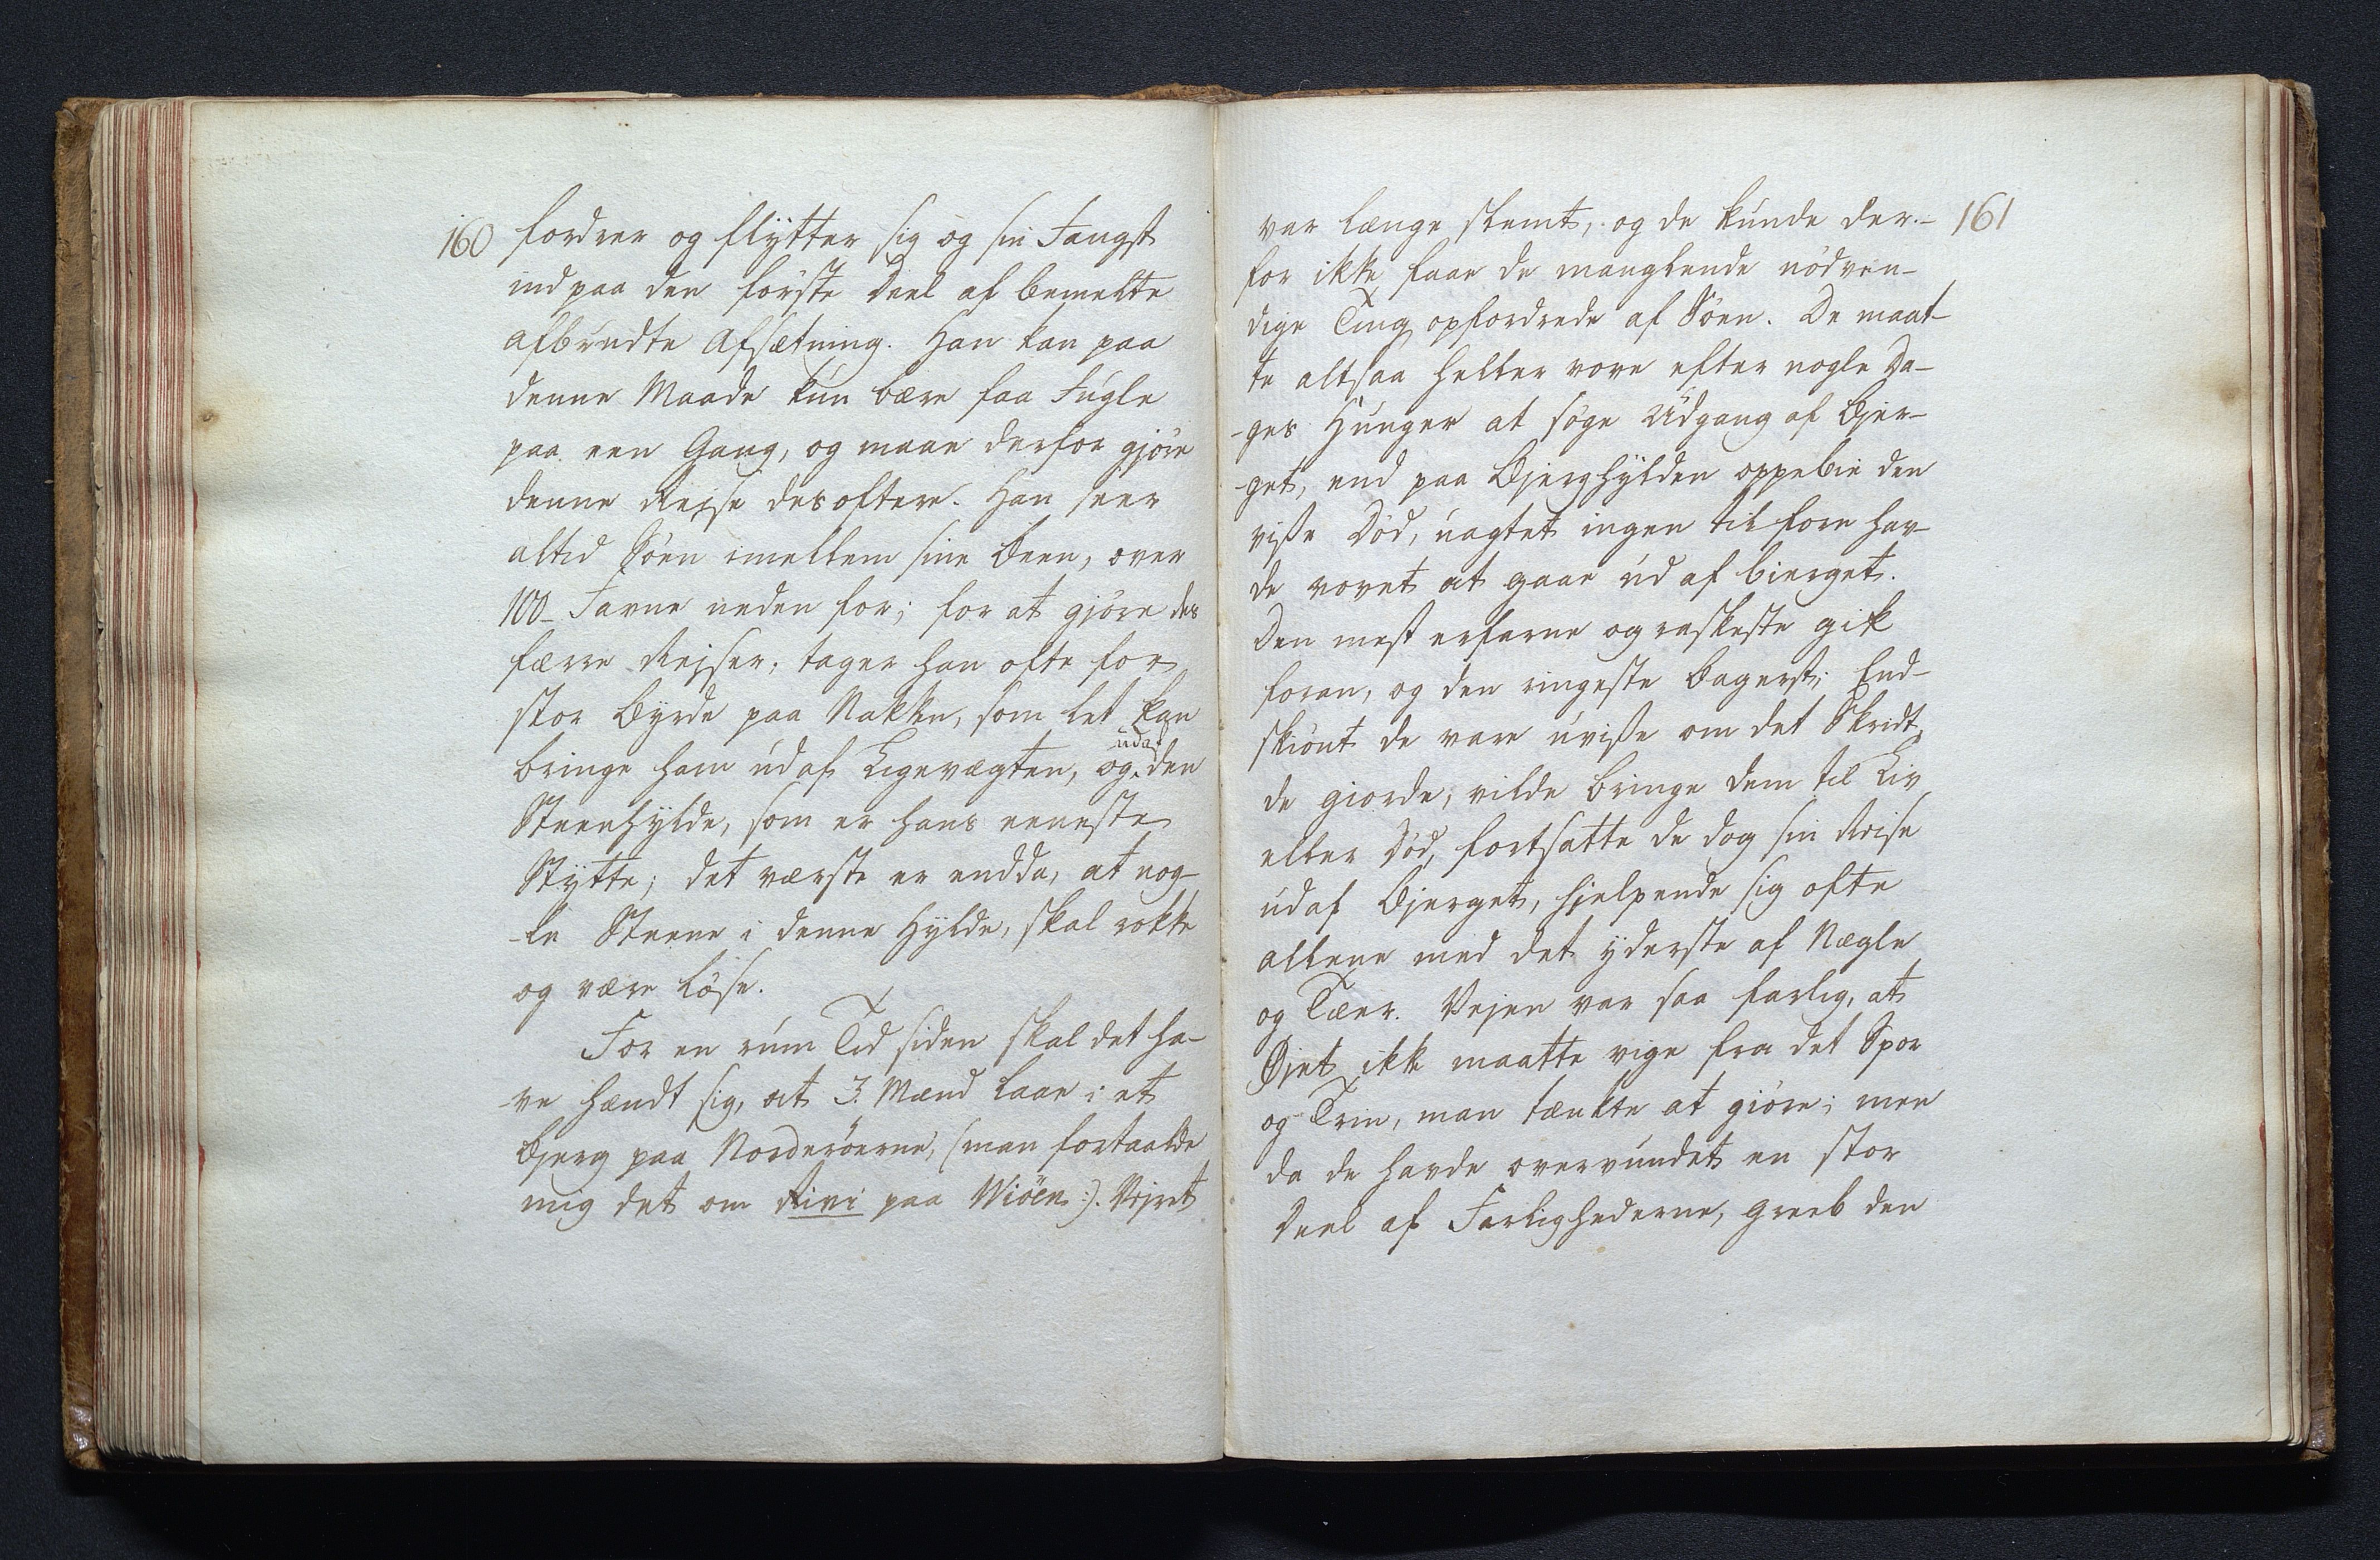 160
fordrer og flÿtter sig og sin Fangst
ind paa den förste Deel af bemelte
afbrudte Afsætning. Han kan paa
denne Maade kun bære faa Fugle
paa een Gang, og maae derfor gjöre
denne Rejse desoftere. Han seer
altid Söen imellem sine Been, over
100 Favne neden for; for at gjöre des
færre Rejser, tager han ofte for
stor Byrde paa Nakken, som let kan
bringe ham ud af Ligevægten, og udaf den
Steenhylde, som er hans eeneste
Stÿtte; det værste er endda, at nog-
-le Steene i denne Hylde, skal rokke
og være löse.
For en rum Tid siden skal det ha-
-ve hændt sig, at 3. Mænd laae i et
Bjerg paa Norderöerne, (man fortaalde
mig det om Rivi paa Wiöen:). Vejret
161
var længe slemt, og de kunde der-
for ikke faae de manglende nödven-
dige Ting opfordrede af Söen. De maat-
te altsaa heller vove efter nogle Da-
-ges Hunger at söge Udgang af Bjer-
-get, end paa Bjerghÿlden oppebie den
visse Död, uagtet ingen tilforn hav-
de vovet at gaae ud af bierget.
Den mest erfarne og raskeste gik
foran, og den ringeste bagerst; End-
skiönt de vare uvisse om det Skridt,
de giorde, vilde bringe dem til Liv
eller Död, fortsatte de dog sin Reise
ud af Bjerget, hjelpende sig ofte
allene med det yderste af Nægle
og Tæer. Vejen var saa farlig, at
Öjet ikke maatte vige fra det Spor
og Trin, man tænkte at giöre; men
da de havde overvundet en stor
Deel af Farlighederne, greeb den